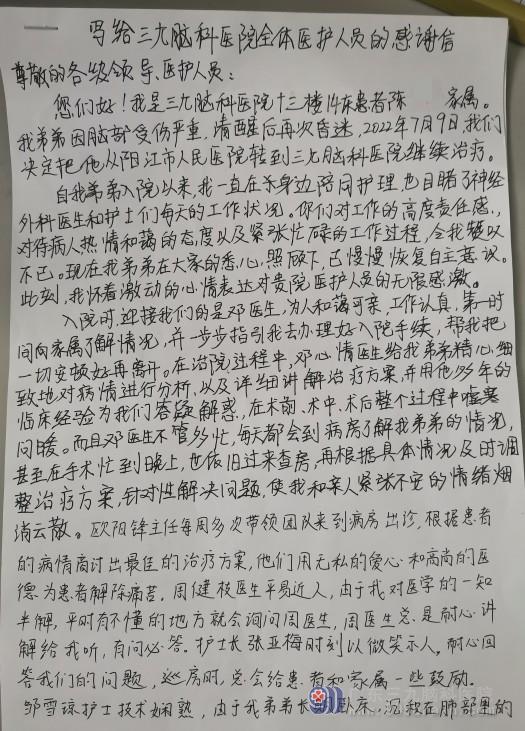 写给三九脑科医院全体医护人员的感谢信
尊敬的各级领导、医护人员：
您们好！我是三九脑科医院十三楼14床患者陈 家属。
我弟弟因脑部受伤严重，清醒后再次昏迷，2022年7月9日，我们
决定把他从阳江市人民医院转到三九脑科医院继续治疗。
自我弟弟入院以来，我一直在其身边陪同护理，也目睹了神经
外科医生和护士们每天的工作状况。你们对工作的高度责任感，
对待病人热情和蔼的态度以及紧张忙碌的工作过程，令我赞叹
不已。现在我弟弟在大家的悉心照顾下，已慢慢恢复自主意识。
此刻，我怀着激动的心情表达对贵院医护人员的无限感激。
入院时，迎接我们的是邓医生，为人和蔼可亲，工作认真，第一时
间向家属了解情况，并一步步指引我去办理好入院手续，帮我把
一切安顿好再离开。在治院过程中，邓心情医生给我弟弟精心，细
致地对病情进行分析，以及详细讲解治疗方案，并用他多年的
临床经验为我们答疑解惑，在术前、术中、术后整个过程中嘘寒
问暖。而且邓医生不管多忙，每天都会到病房了解我弟弟的情况，
甚至在手术忙到晚上，也依旧过来查房，再根据具体情况及时调
整治疗方案，针对性解决问题，使我和亲人紧张不安的情绪烟
消云散。欧阳锋主任每周多次带领团队来到病房出诊，根据患者
的病情商讨出最佳的治疗方案，他们用无私的爱心和高尚的医
德为患者解除病苦。周健枝医生平易近人，由于我对医学的一知
半解，平时有不懂的地方就会询问周医生，周医生总是耐心讲
解给我听，有问必答。护士长张亚梅时刻以微笑示人，耐心回
答我们的问题，巡房时，总会给患者和家属一些鼓励。
邹雪琼护士技术娴熟，由于我弟弟长期卧床，沉积在肺部里的
广东三九脑科医院